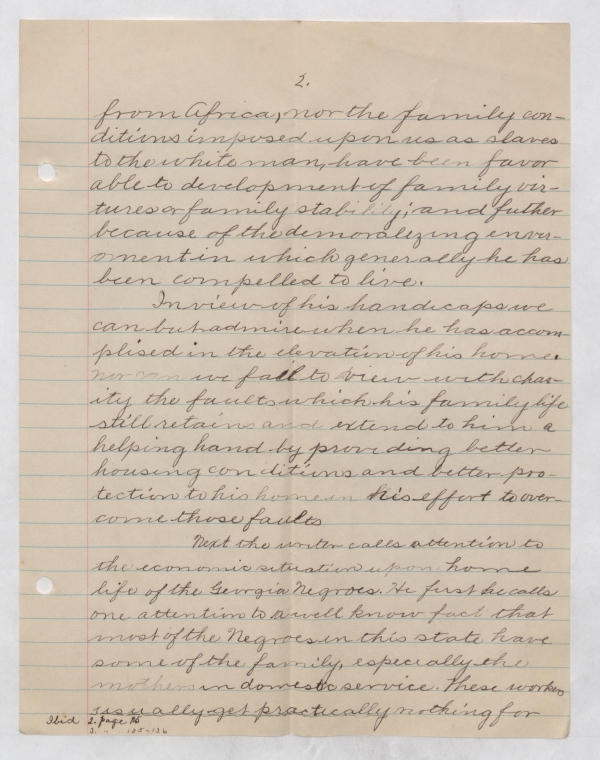 2.
from Africa, nor the family con-
ditions imposed upon us as slaves
to the white man, have been favor
able to development of family vir-
tures or family stability; and futher
because of the demoralizing envir-
onment in which generally he has
been compelled to live.
In view of his handicaps we
can but admire when he has accom-
plised in the elevation of his home.
nor can we fail to view with char-
ity the faults which his family life
still retains and extend to him a
helping hand by providing better
housing conditions and better pro-
tection to his home in his effort to over-
come those faults
Next the writer calls attention to
the economic situation upon home
life of the Georgia Negroes. He first he calls
one attention to a well know fact that
most of the Negroes in this state have
some of the family, especially the
mothers in domestic service. These workers
usually get practically nothing for
Ibid 2. page 16
3. " 135-136